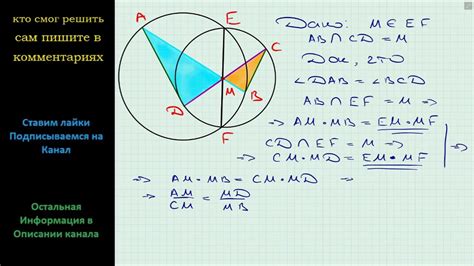 кто смог решить
сам пишите в
комментариях
Ставим лайки
Подписываемся на
Канал
Остальная
Информация в
Описании канала
A
E
C
M
B
D
F
Дано: M ∈ EF
AB ∩ CD = M
Док, что
∠DAB = ∠BCD
AB ∩ EF = M ⇒
⇒ AM · MB = EM · MF
CD ∩ EF = M ⇒
⇒ CM · MD = EM · MF
⇒ AM · MB = CM · MD ⇒
⇒ AM/CM = MD/MB